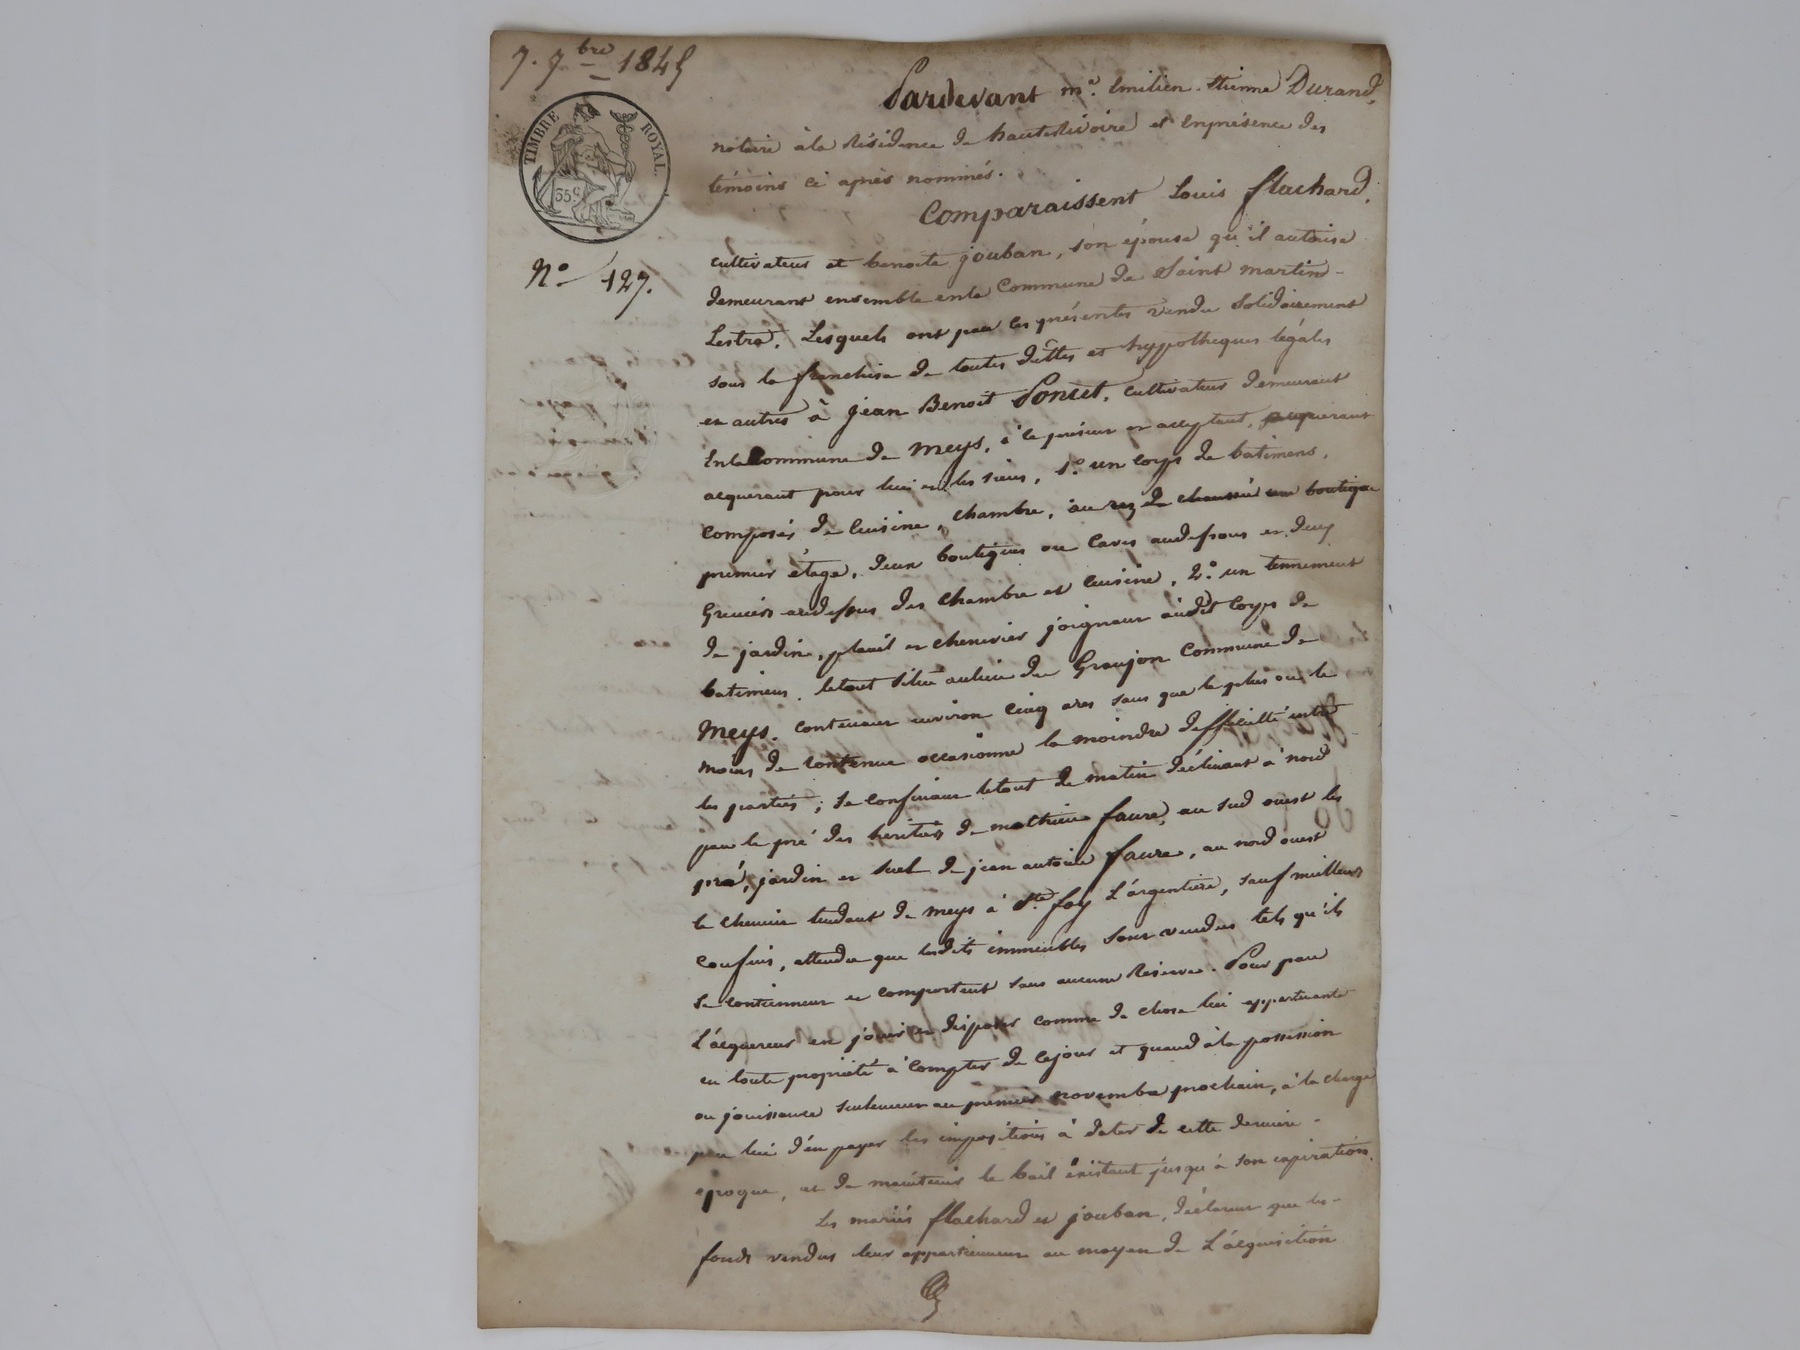 7. 7bre 1845
TIMBRE ROYAL.
35c
No 127.
Pardevant me. Emilien Etienne Durand,
notaire à la Résidence de hauterivoire et Enprésence des
témoins ci après nommés.
Comparaissent Louis flachard,
cultivateur et benoite jouban, son épouse qu'il autorise
demeurant ensemble enla Commune de Saint martin-
Lestra. Lesquels ont par les présentes vendu Solidairement
sous la franchise de toutes dêttes et hyppotheques légales
et autres à jean Benoit Poncet, cultivateur demeurant
Enla commune de meys, à ce présent et acceptant,
acquerant pour lui et les siens, 1.o un corps de batimens,
composés de Cuisine, chambre, au rez de chaussée une boutique
premier étage, deux boutiques ou Caves audessous et deux
Greniers audessus des Chambre et Cuisine, 2.o un tennement
de jardin, et chenevier joignant audit Corps de
batimens. letout Situé aulieu de Graujon Commune de
Meys. contenant environ Cinq ares sans que le plus ou le
moins de contenue occasionne la moindre difficulté entre
les parties; Se confinant letout de matin déclinant à nord
par le pré des heritiers de mathieu faure, au sud ouest les
pré, jardin et suel de jean antoine faure, au nord ouest
le chemin tendant de meys à Ste. foy L'argentiere, sauf meilleurs
Confins, attendu que lesdits immeubles Sont vendus tels qu'ils
Se contiennent et comportent sans aucune Réserve. Pour par
L'acquereur en jouir et disposer comme de chose lui appartenante
en toute propriété à compter de cejour et quand à la possession
ou jouissance seulement au premier novembre prochain, à la charge
par lui d'en payer les impositions à dater de cette derniere
epoque, et de maintenir le bail éxistant jusqu'à son expiration.
Les mariés flachard et jouban, déclarent que les
fonds vendus leur appartiennent au moyen de L'acquisition